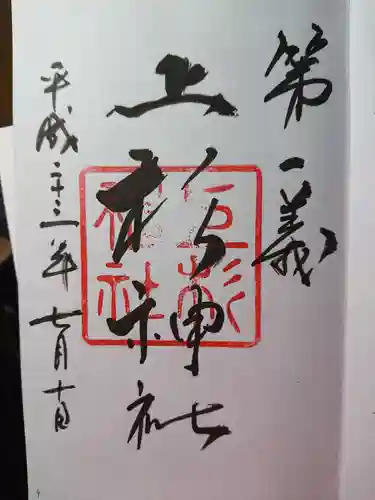 第一義
上杉神社
上杉神社
平成二十三年七月十日